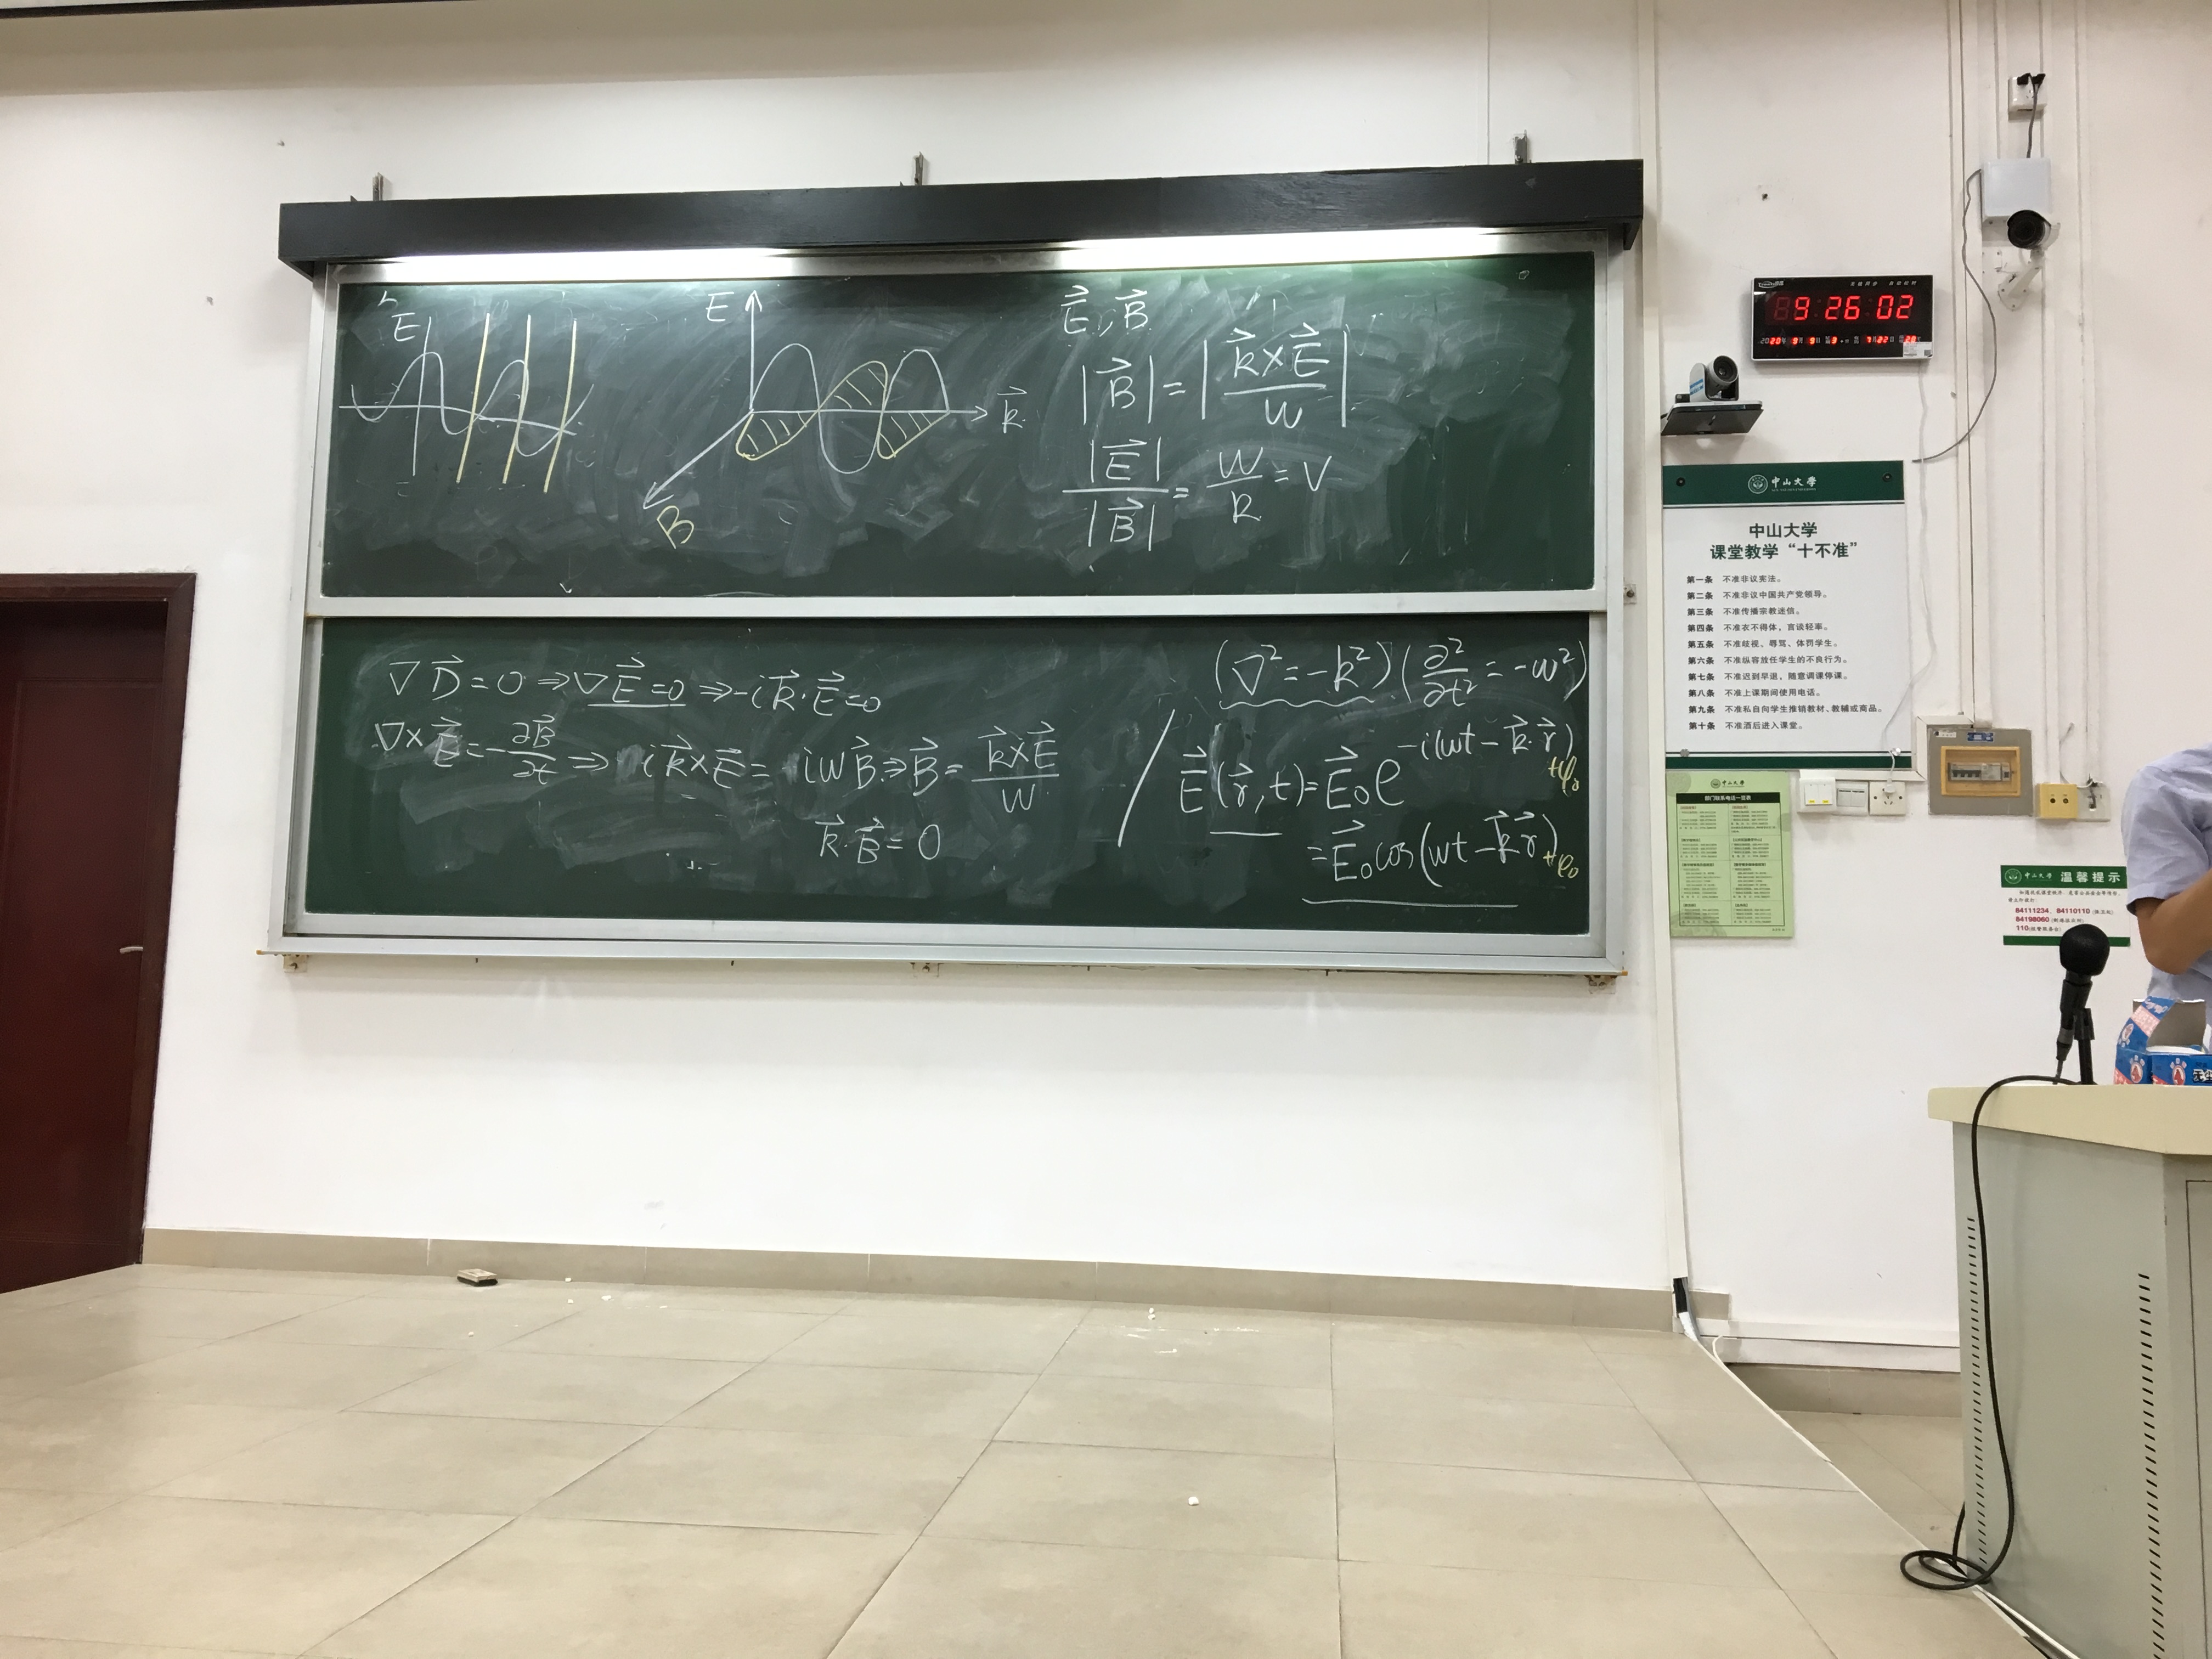 E
E
k⃗
B
E⃗, B⃗
|B⃗| = |k⃗×E⃗ / w|
|E⃗| / |B⃗| = w/k = v
∇D⃗=0 ⇒ ∇E⃗=0 ⇒ -ik⃗·E⃗=0
∇×E⃗ = -∂B⃗/∂t ⇒ ik⃗×E⃗ = iwB⃗ ⇒ B⃗ = k⃗×E⃗ / w
k⃗·B⃗ = 0
(∇²=-k²)(∂²/∂t²=-w²)
E⃗(r⃗,t)=E⃗₀e^{-i(wt-k⃗·r⃗)+φ₀}
=E⃗₀cos(wt-k⃗·r⃗)+φ₀
9 26 02
中山大学
中山大学
课堂教学“十不准”
第一条 不准非议宪法。
第二条 不准非议中国共产党领导。
第三条 不准传播宗教迷信。
第四条 不准衣不得体，言谈轻率。
第五条 不准歧视、辱骂、体罚学生。
第六条 不准纵容放任学生的不良行为。
第七条 不准迟到早退，随意调课停课。
第八条 不准上课期间使用电话。
第九条 不准私自向学生推销教材、教辅或商品。
第十条 不准酒后进入课堂。
中山大学
部门联系电话一览表
中山大学 温馨提示
84111234、84110110
84198060
110